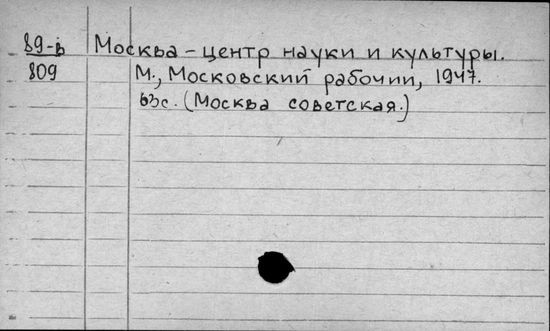 89-в Москва-центр науки и культуры.
809 М., Московский рабочий, 1947.
63с. (Москва советская.)